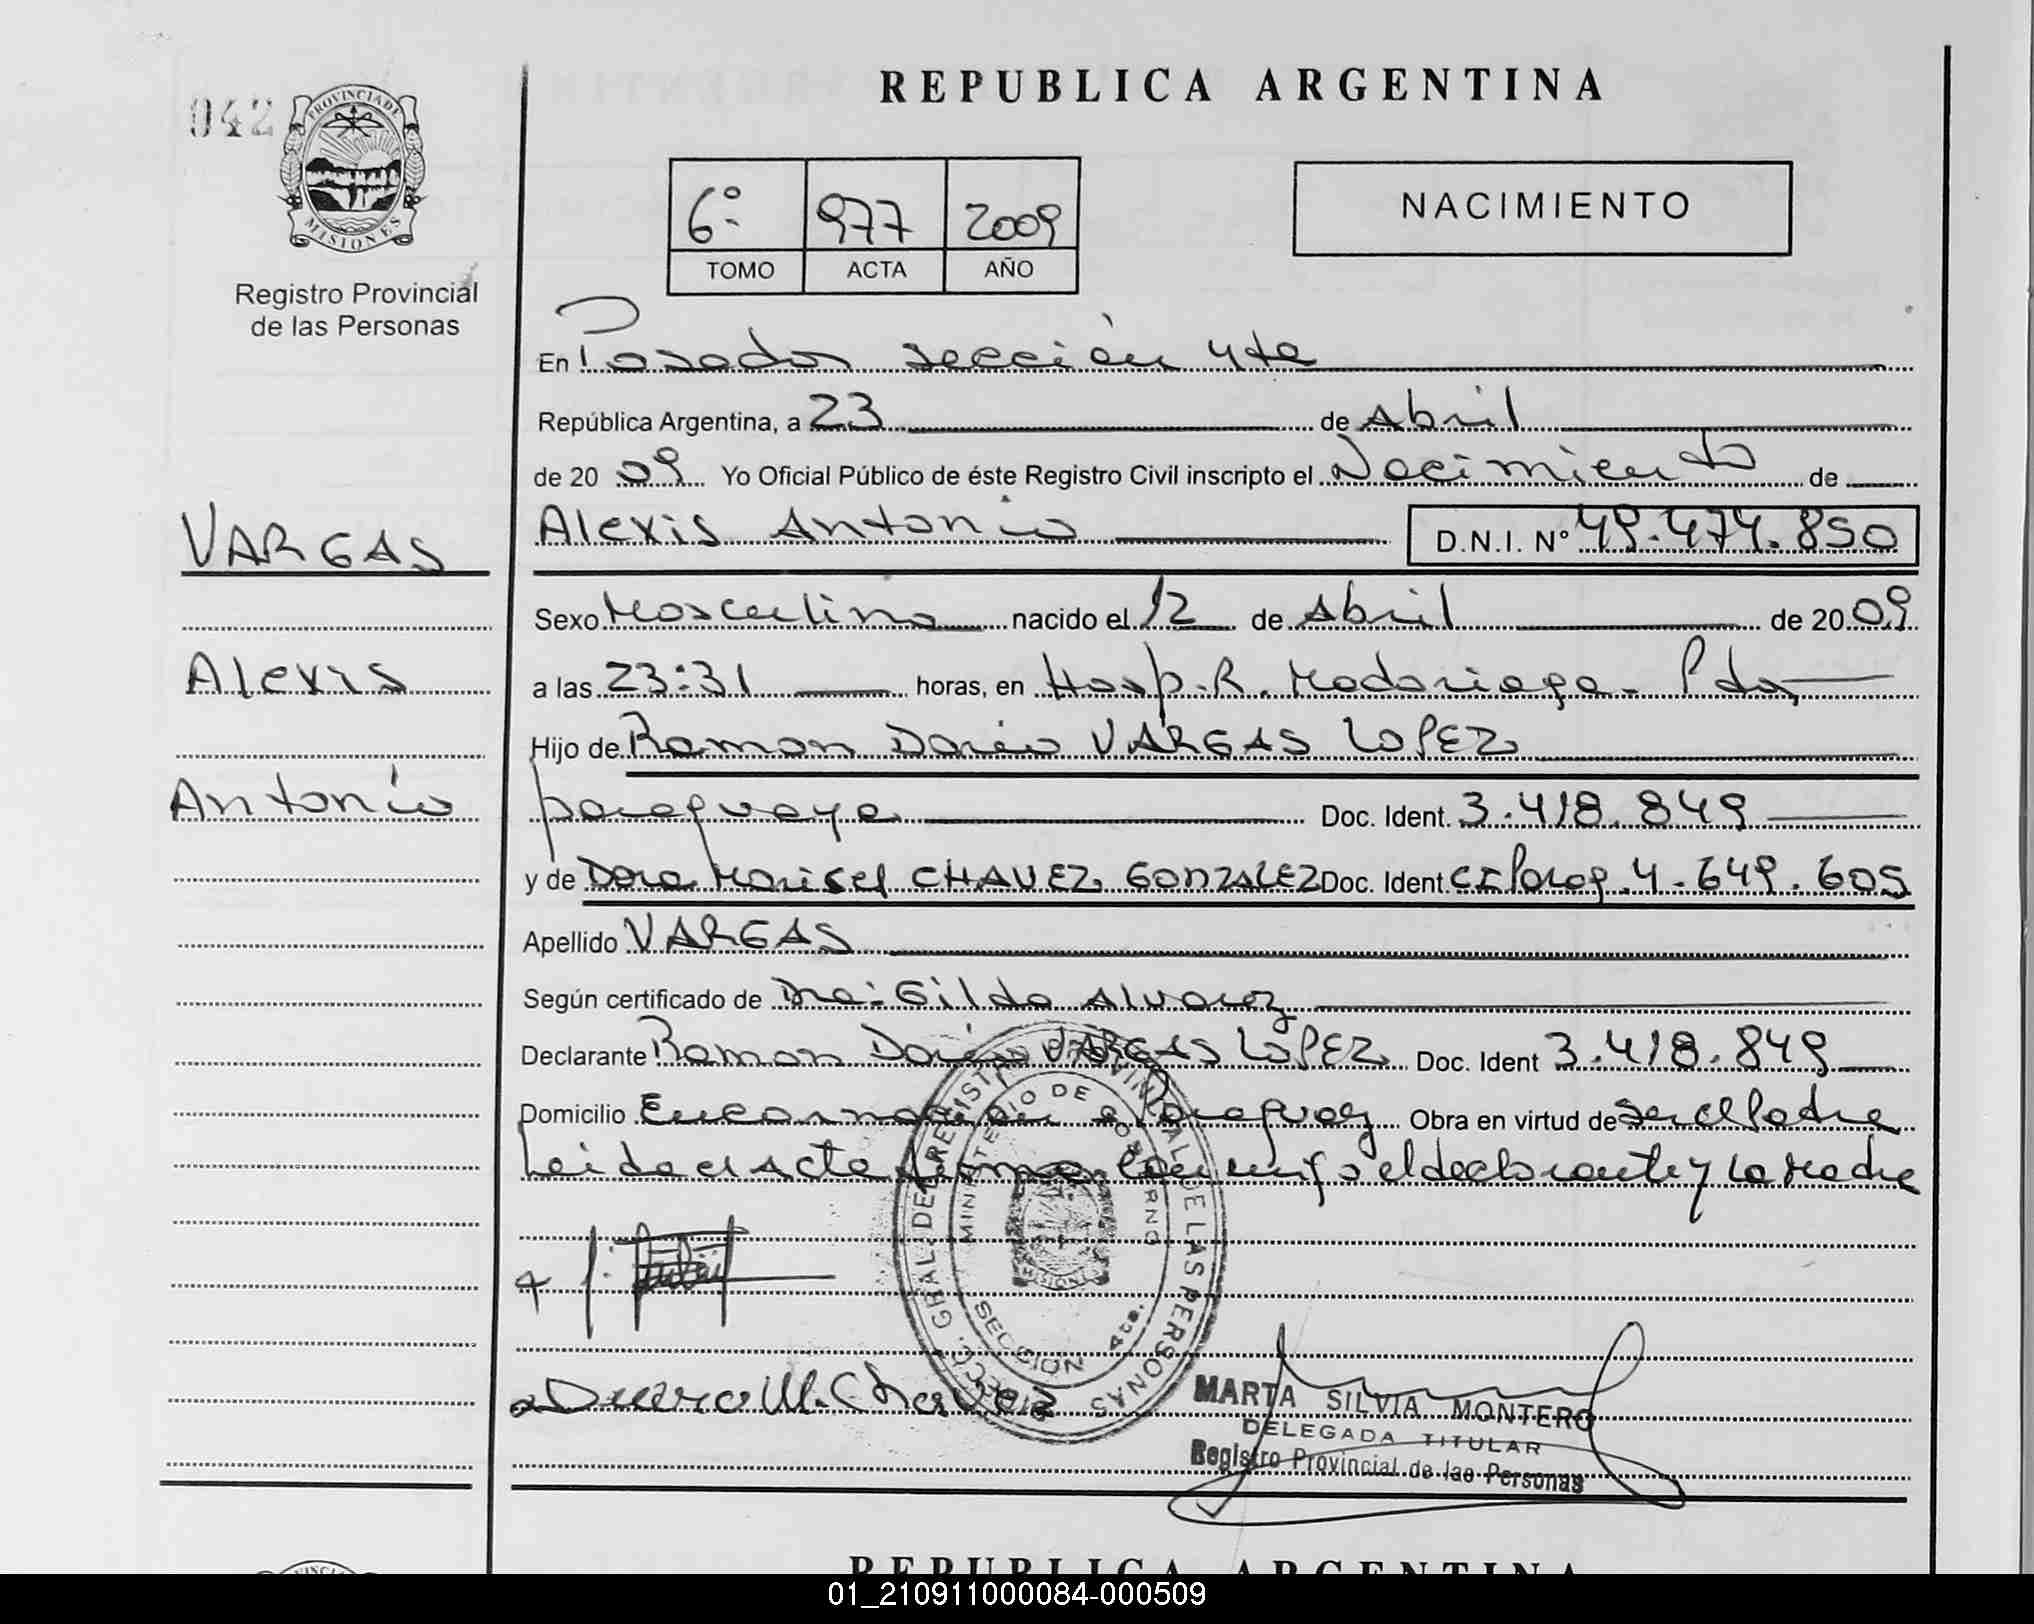 REPUBLICA ARGENTINA
042
PROVINCIA DE
MISIONES
Registro Provincial
de las Personas
6º 977 2009
TOMO ACTA AÑO
NACIMIENTO
En Posadas sección 4ta
República Argentina, a 23 de Abril
de 20 09 Yo Oficial Público de éste Registro Civil inscripto el Nacimiento de
VARGAS
Alexis Antonio D.N.I. N° 49.474.850
Sexo Masculino nacido el 12 de Abril de 20 09
Alexis
a las 23:31 horas, en Hosp. R. Madariaga. Pdas
Hijo de Ramon Dario VARGAS LOPEZ
Antonio
paraguaya Doc. Ident. 3.418.849
y de Dora Marisel CHAVEZ GONZALEZ Doc. Ident. CI Parag. 4.649.605
Apellido VARGAS
Según certificado de Dra: Gilda Alvarez
Declarante Ramon Dario VARGAS LOPEZ Doc. Ident 3.418.849
Domicilio Encarnación Paraguay Obra en virtud de ser el Padre
Leida el Acta firma conmigo el declarante y la Madre
DIRECC. GRAL. DEL REGISTRO PROVINCIAL DE LAS PERSONAS
MINISTERIO DE GOBIERNO
MISIONES
SECCIÓN 4ta.
M. Chavez
MARTA SILVIA MONTERO
DELEGADA TITULAR
Registro Provincial de las Personas
REPUBLICA ARGENTINA
01_210911000084-000509